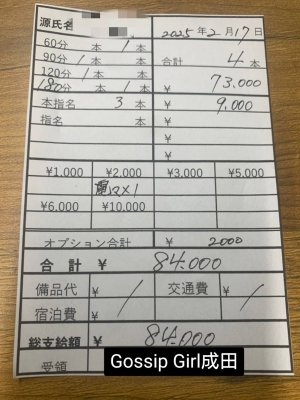 源氏名
2025年2月17日
60分 本 1 本
合計 4 本
90分 1 本 本
120分 1 本 本
¥ 73,000
180分 1 本
本指名 3 本
¥ 9,000
指名 本
¥
¥
¥1,000 ¥2,000 ¥3,000 ¥5,000
¥6,000 ¥10,000
オプション合計 ¥ 2000
合計 ¥ 84,000
備品代 ¥ / 交通費 ¥ /
宿泊費 ¥ /
総支給額 ¥ 84,000
受領
Gossip Girl成田